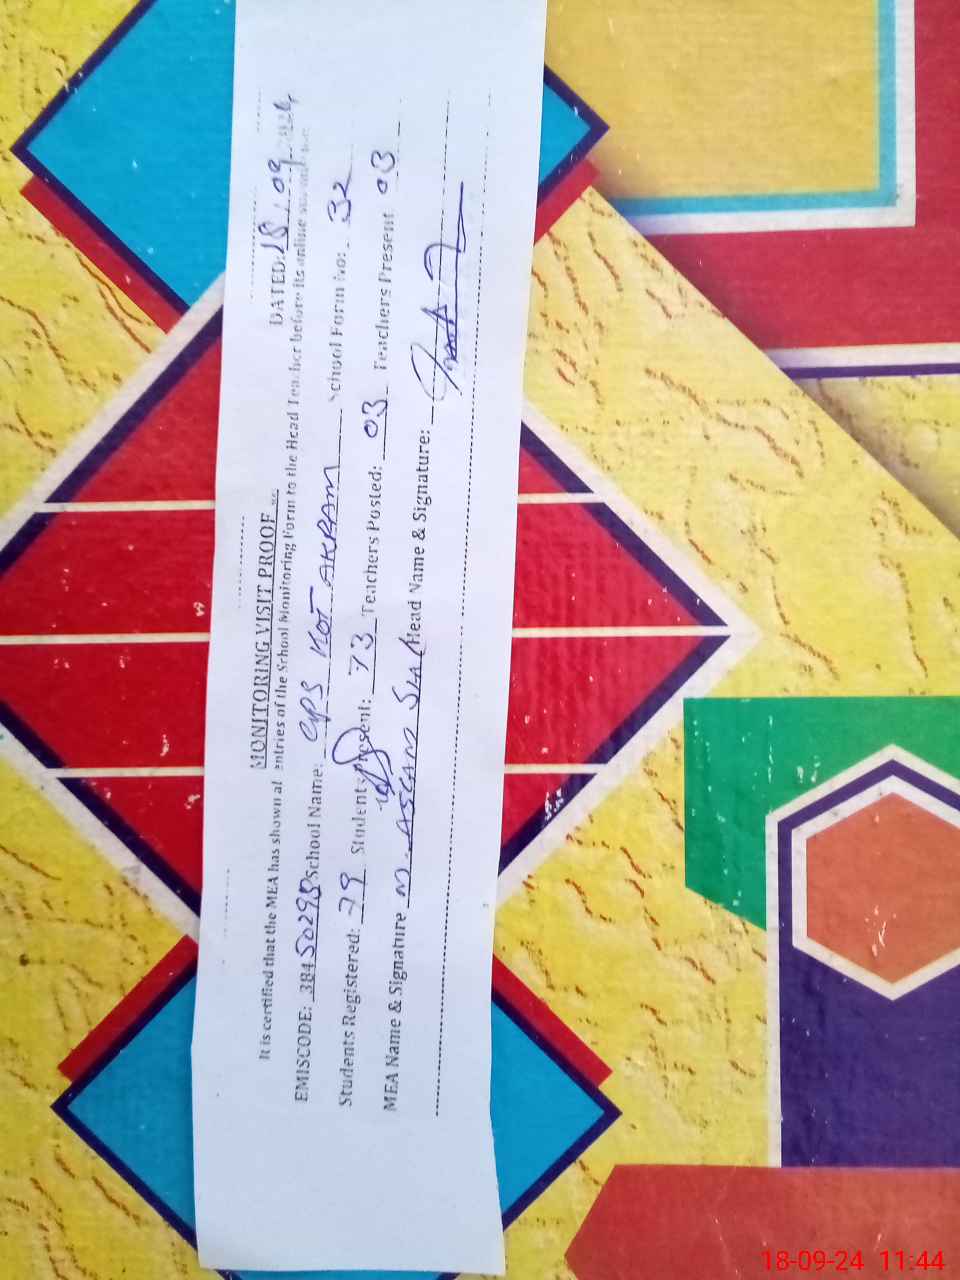 MONITORING VISIT PROOF
DATED: 18/09/2024
It is certified that the MEA has shown all entries of the School Monitoring Form to the Head Teacher before its online
EMISCODE: 38450298 School Name: GPS KOT AKRAM School Form No: 32
Students Registered: 79 Students Present: 73 Teachers Posted: 03 Teachers Present 03
MEA Name & Signature M. ASLAM Head Name & Signature:
18-09-24 11:44